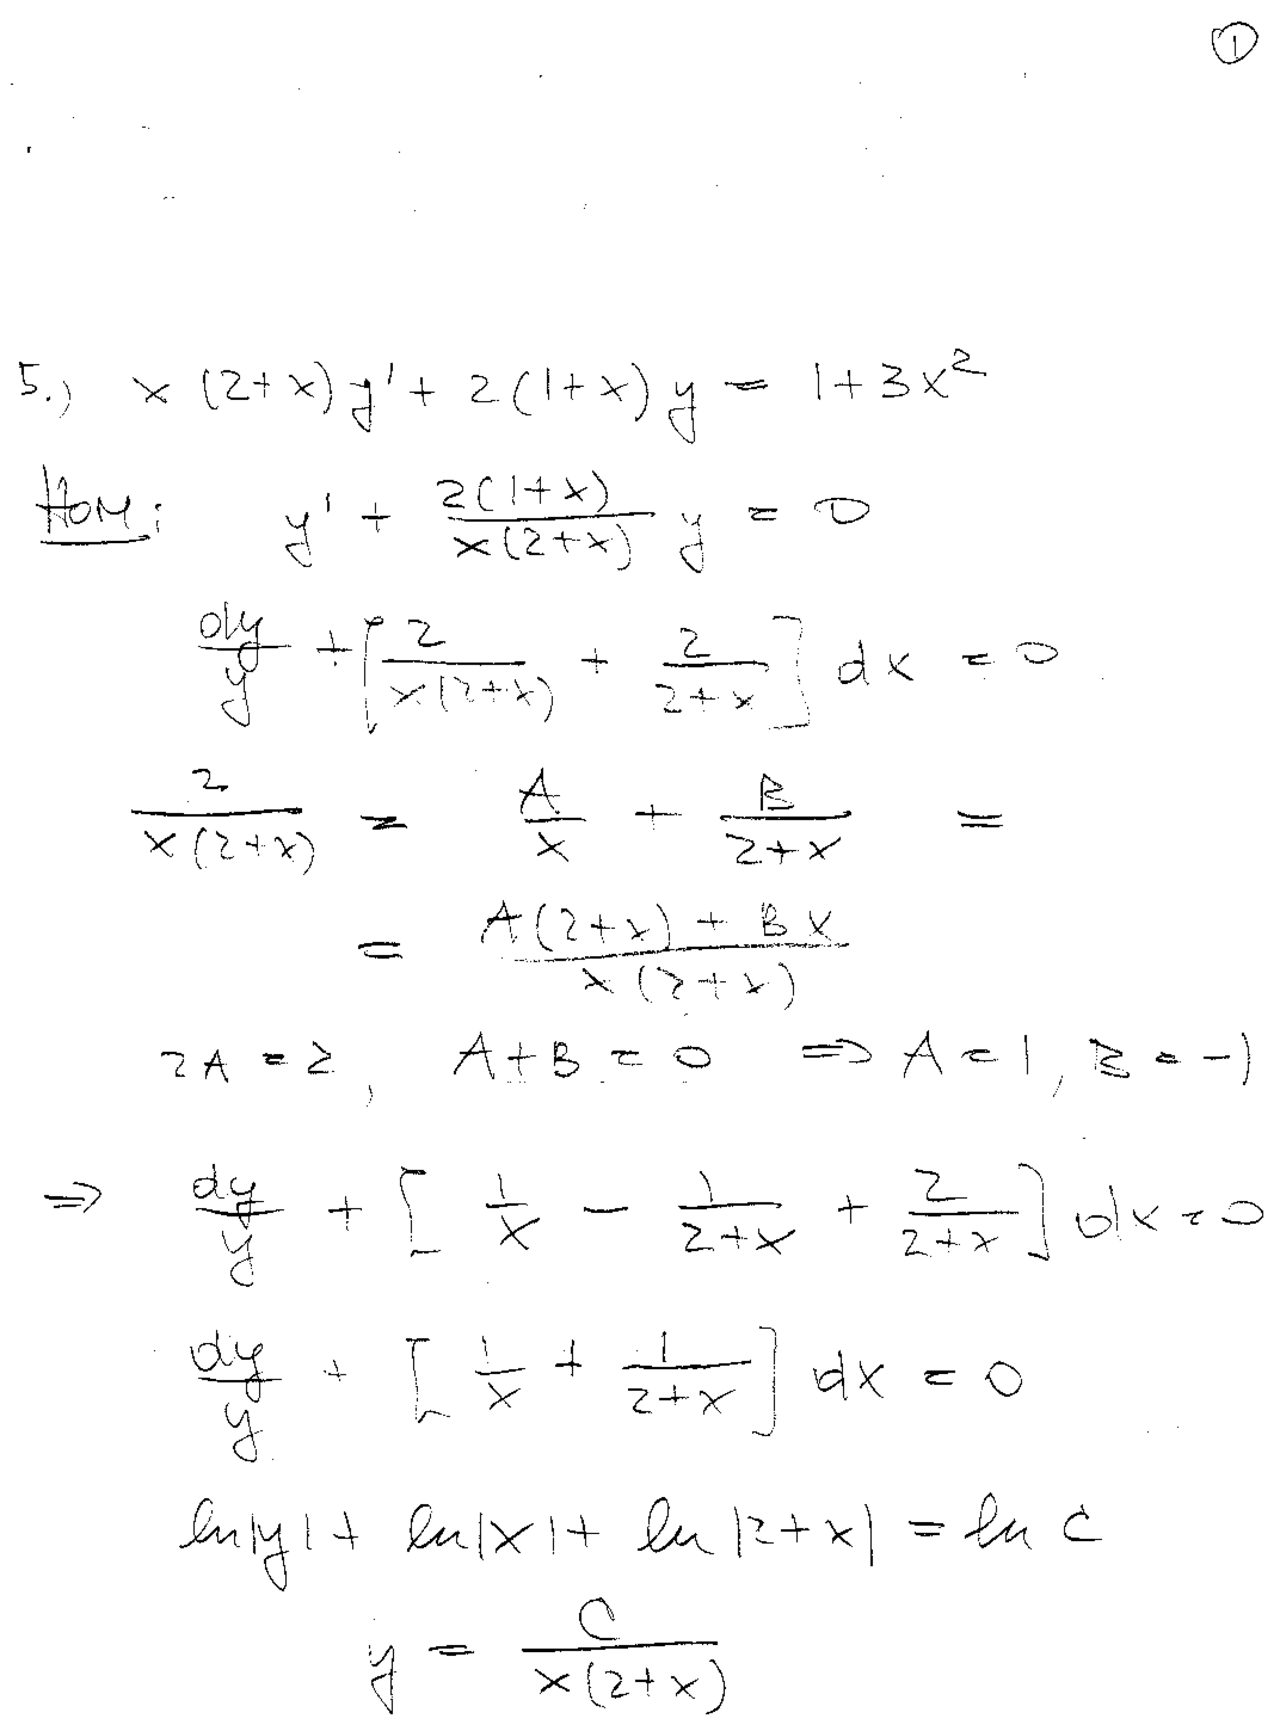 ①
5.) x(2+x)y' + 2(1+x)y = 1+3x²
Hom: y' + \frac{2(1+x)}{x(2+x)} y = 0
\frac{dy}{y} + [\frac{2}{x(2+x)} + \frac{2}{2+x}] dx = 0
\frac{2}{x(2+x)} = \frac{A}{x} + \frac{B}{2+x} =
= \frac{A(2+x) + Bx}{x(2+x)}
2A = 2, A+B = 0 ⇒ A = 1, B = -1
⇒ \frac{dy}{y} + [\frac{1}{x} - \frac{1}{2+x} + \frac{2}{2+x}] dx = 0
\frac{dy}{y} + [\frac{1}{x} + \frac{1}{2+x}] dx = 0
ln|y| + ln|x| + ln|2+x| = ln C
y = \frac{C}{x(2+x)}